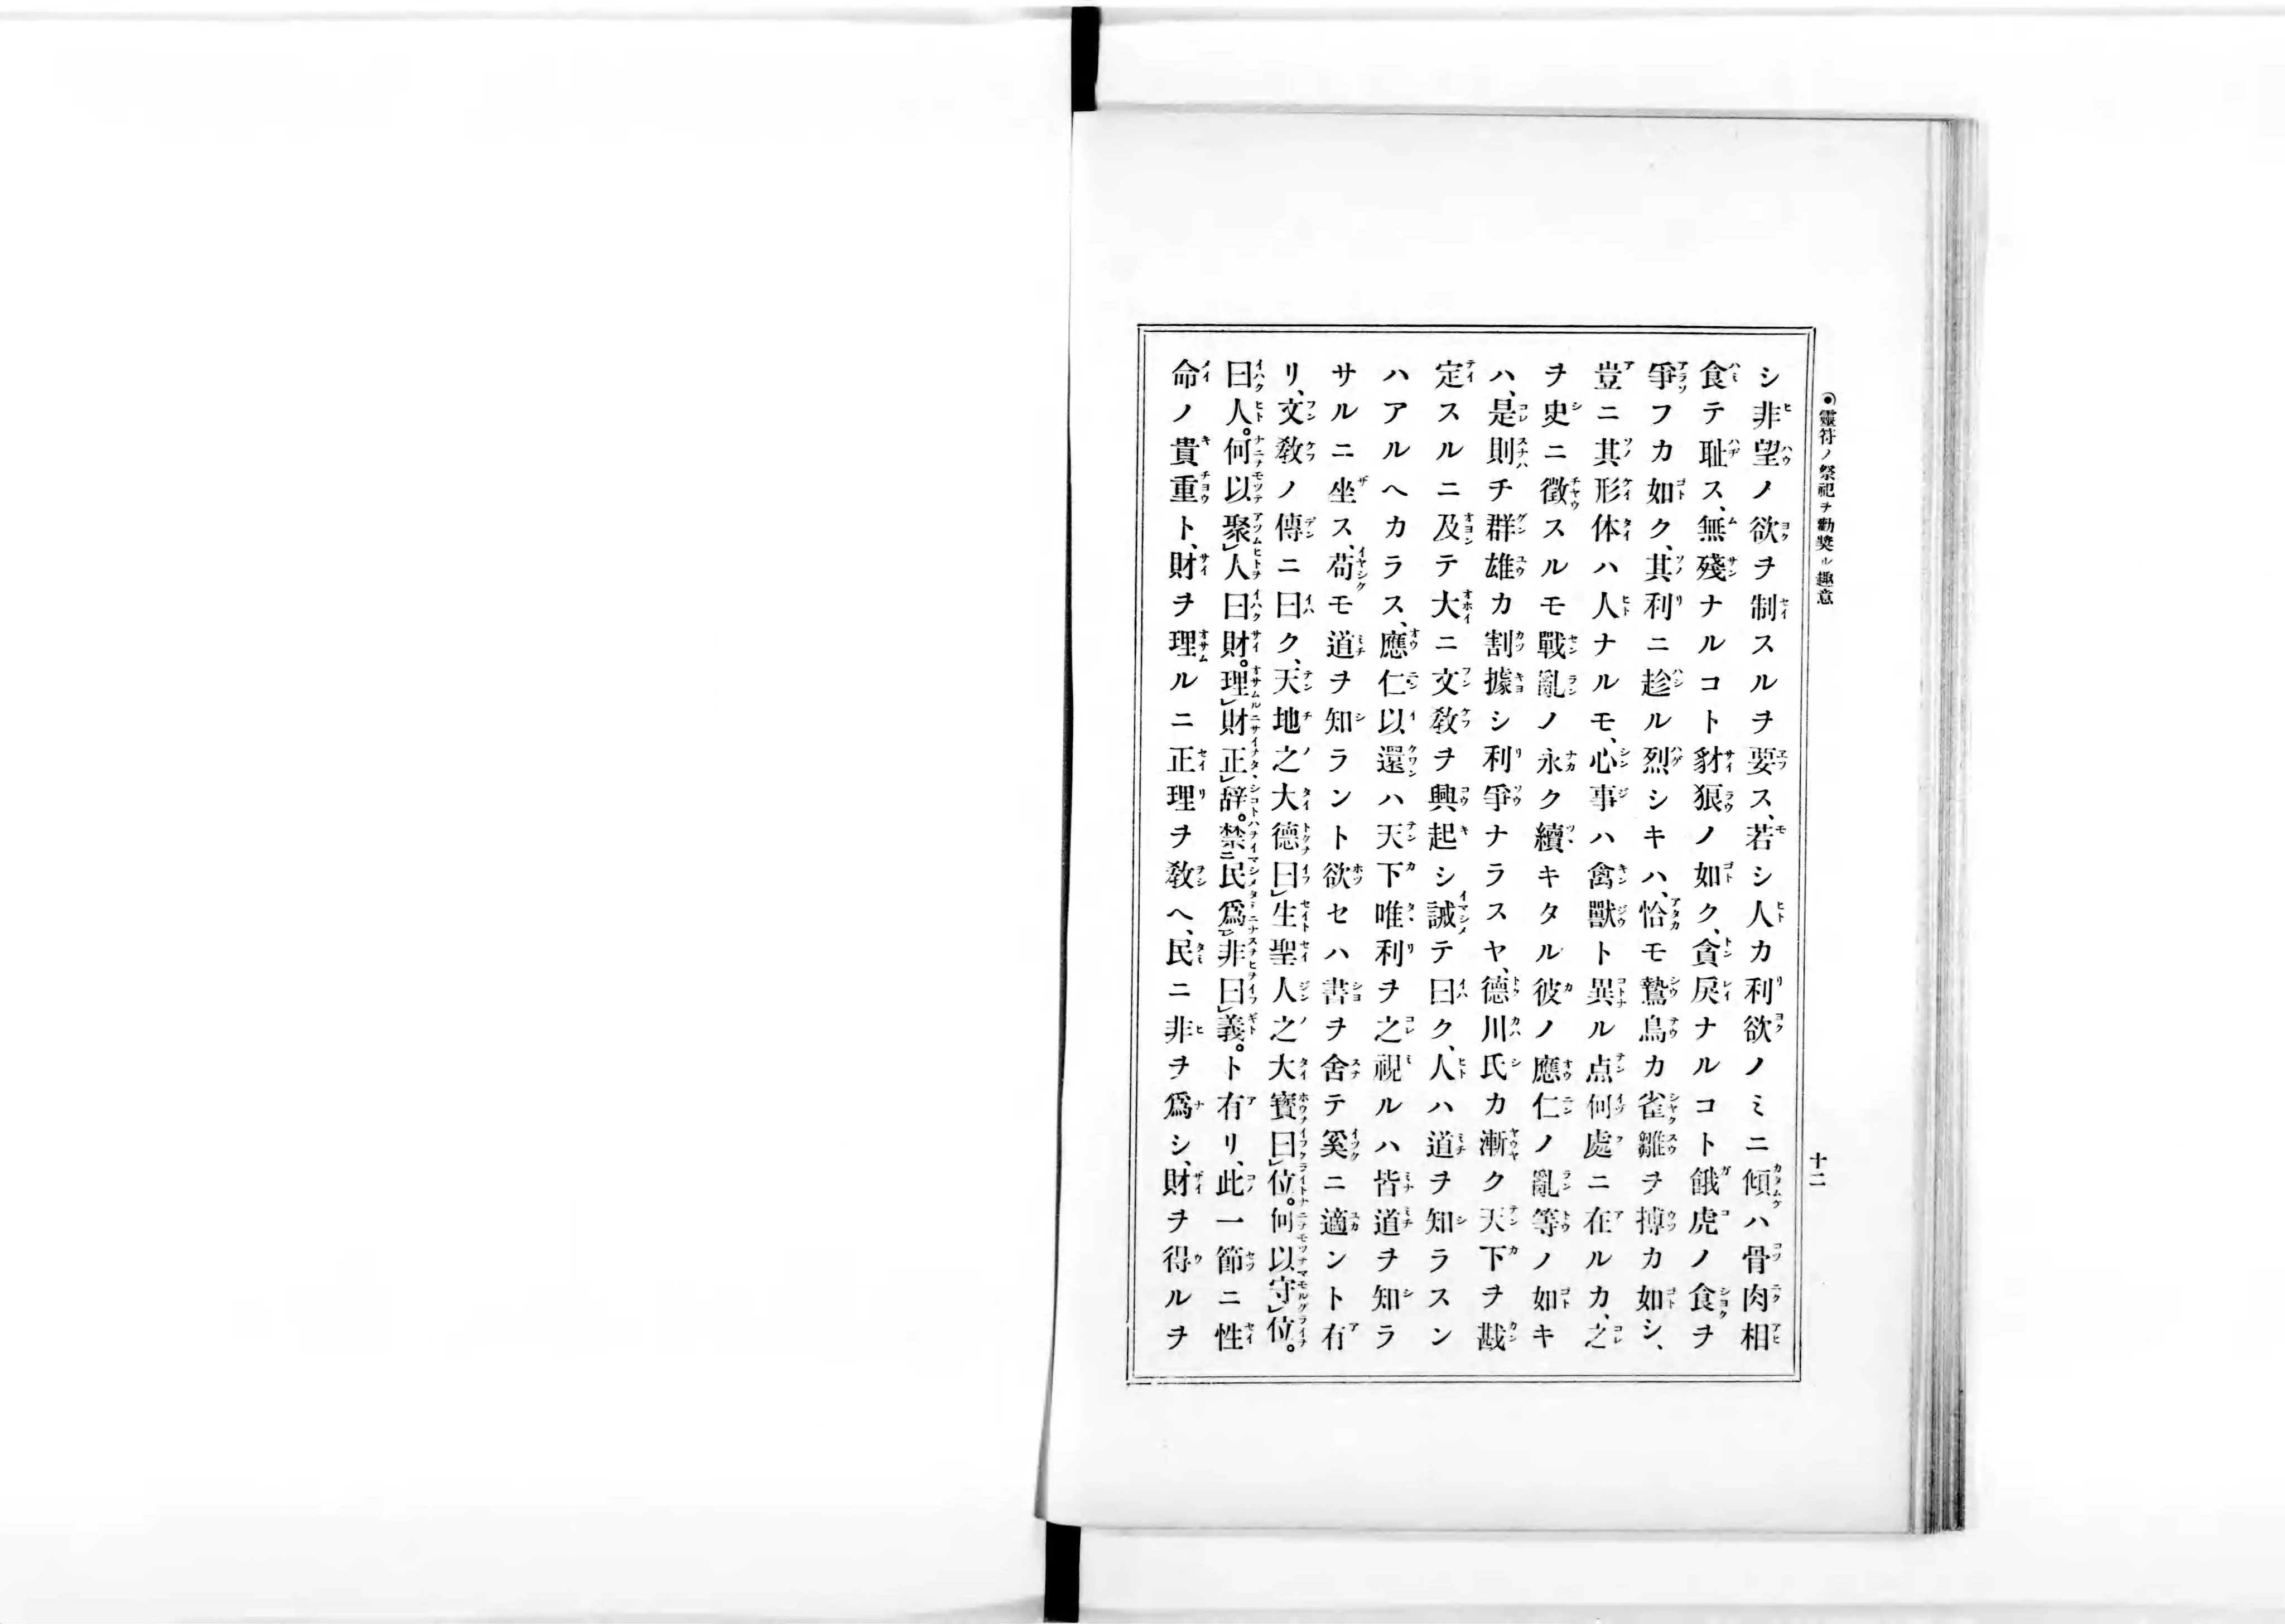 ◉靈符ノ祭祀ヲ勸奬ル趣意
十二
シ非望ノ欲ヲ制スルヲ要ス、若シ人カ利欲ノミニ傾ハ骨肉相
食テ耻ス、無殘ナルコト豺狼ノ如ク、貪戾ナルコト餓虎ノ食ヲ
爭フカ如ク、其利ニ趁ル烈シキハ、恰モ鷙鳥カ雀雛ヲ搏カ如シ、
豈ニ其形体ハ人ナルモ、心事ハ禽獸ト異ル点何處ニ在ルカ、之
ヲ史ニ徵スルモ戰亂ノ永ク續キタル彼ノ應仁ノ亂等ノ如キ
ハ、是則チ群雄カ割據シ利爭ナラスヤ、德川氏カ漸ク天下ヲ戡
定スルニ及テ大ニ文敎ヲ興起シ誡テ曰ク、人ハ道ヲ知ラスン
ハアルヘカラス、應仁以還ハ天下唯利ヲ之視ルハ皆道ヲ知ラ
サルニ坐ス、苟モ道ヲ知ラント欲セハ書ヲ舍テ奚ニ適ント有
リ、文敎ノ傳ニ曰ク、天地之大德曰生聖人之大寶曰位。何以守位。
曰人。何以聚人曰財。理財正辭。禁民爲非曰義。ト有リ、此一節ニ性
命ノ貴重ト、財ヲ理ルニ正理ヲ敎ヘ、民ニ非ヲ爲シ、財ヲ得ルヲ